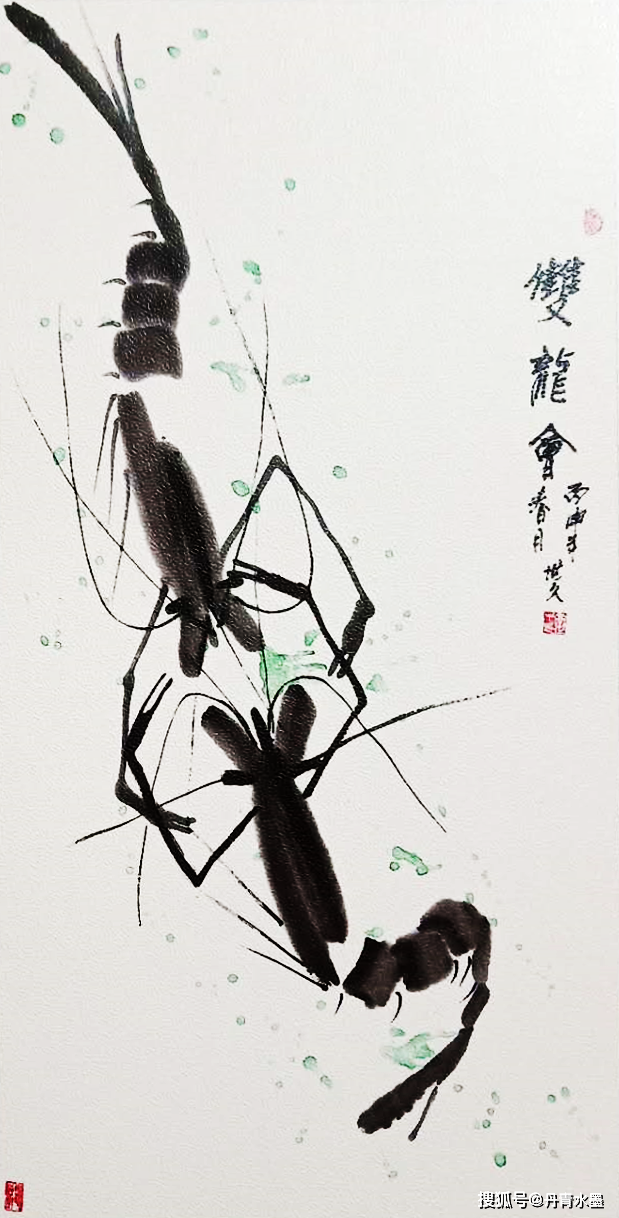 雙龍會
丙申年
春月
世久
搜狐号@丹青水墨